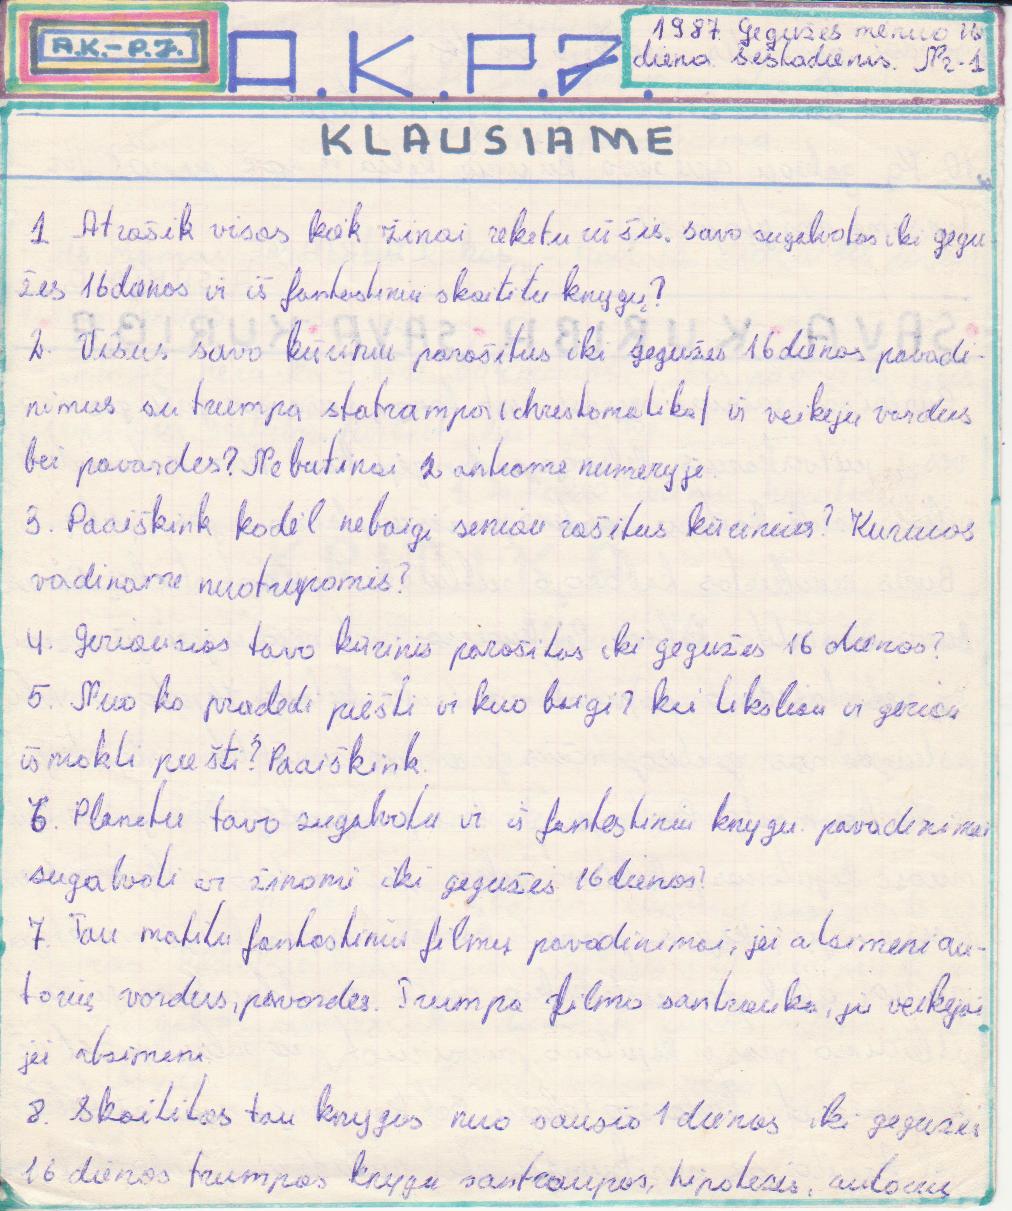 A.K.-P.Ž.
A.K.P.Ž.
1987 Gegužės mėnuo 16
diena šeštadienis. Nr-1
KLAUSIAME
1 Atrašik visas kok žinai reketu rūšis. savo sugalvotas iki gegu-
žes 16 dienos ir iš fantastiniu skaititu knygų?
2. Visus savo kūriniu parašitus iki gegužes 16 dienos pavadi-
nimus su trumpa (chrestomatika) ir veikeju vardus
bei pavardes? Nebutinai 2 ankame numeryje.
3. Paaiškink kodėl nebaigi seniau rašitus kūrinius? Kuriuos
vadiname nuotrupomis?
4. Geriausias tavo kūrinis parašitas iki gegužės 16 dienos?
5. Nuo ko pradedi piešti ir kuo baigi? kai liksliau ir geriau
išmokti piešti? Paaiškink.
6. Planetu tavo sugalvotu ir iš fantastiniu knygu pavadinimai
sugalvoti ar žinomi iki gegužes 16 dienos?
7. Tau matitu fantastiniu filmų pavadinimai, jei atsimeni au-
torių vardus, pavardes. Trumpa filmo santrauka, ju veikejai
jei atsimeni.
8. Skaititas tau knygas nuo sausio 1 dienos iki gegužes
16 dienos trumpas knygu santraupas, hipotezes, autorių